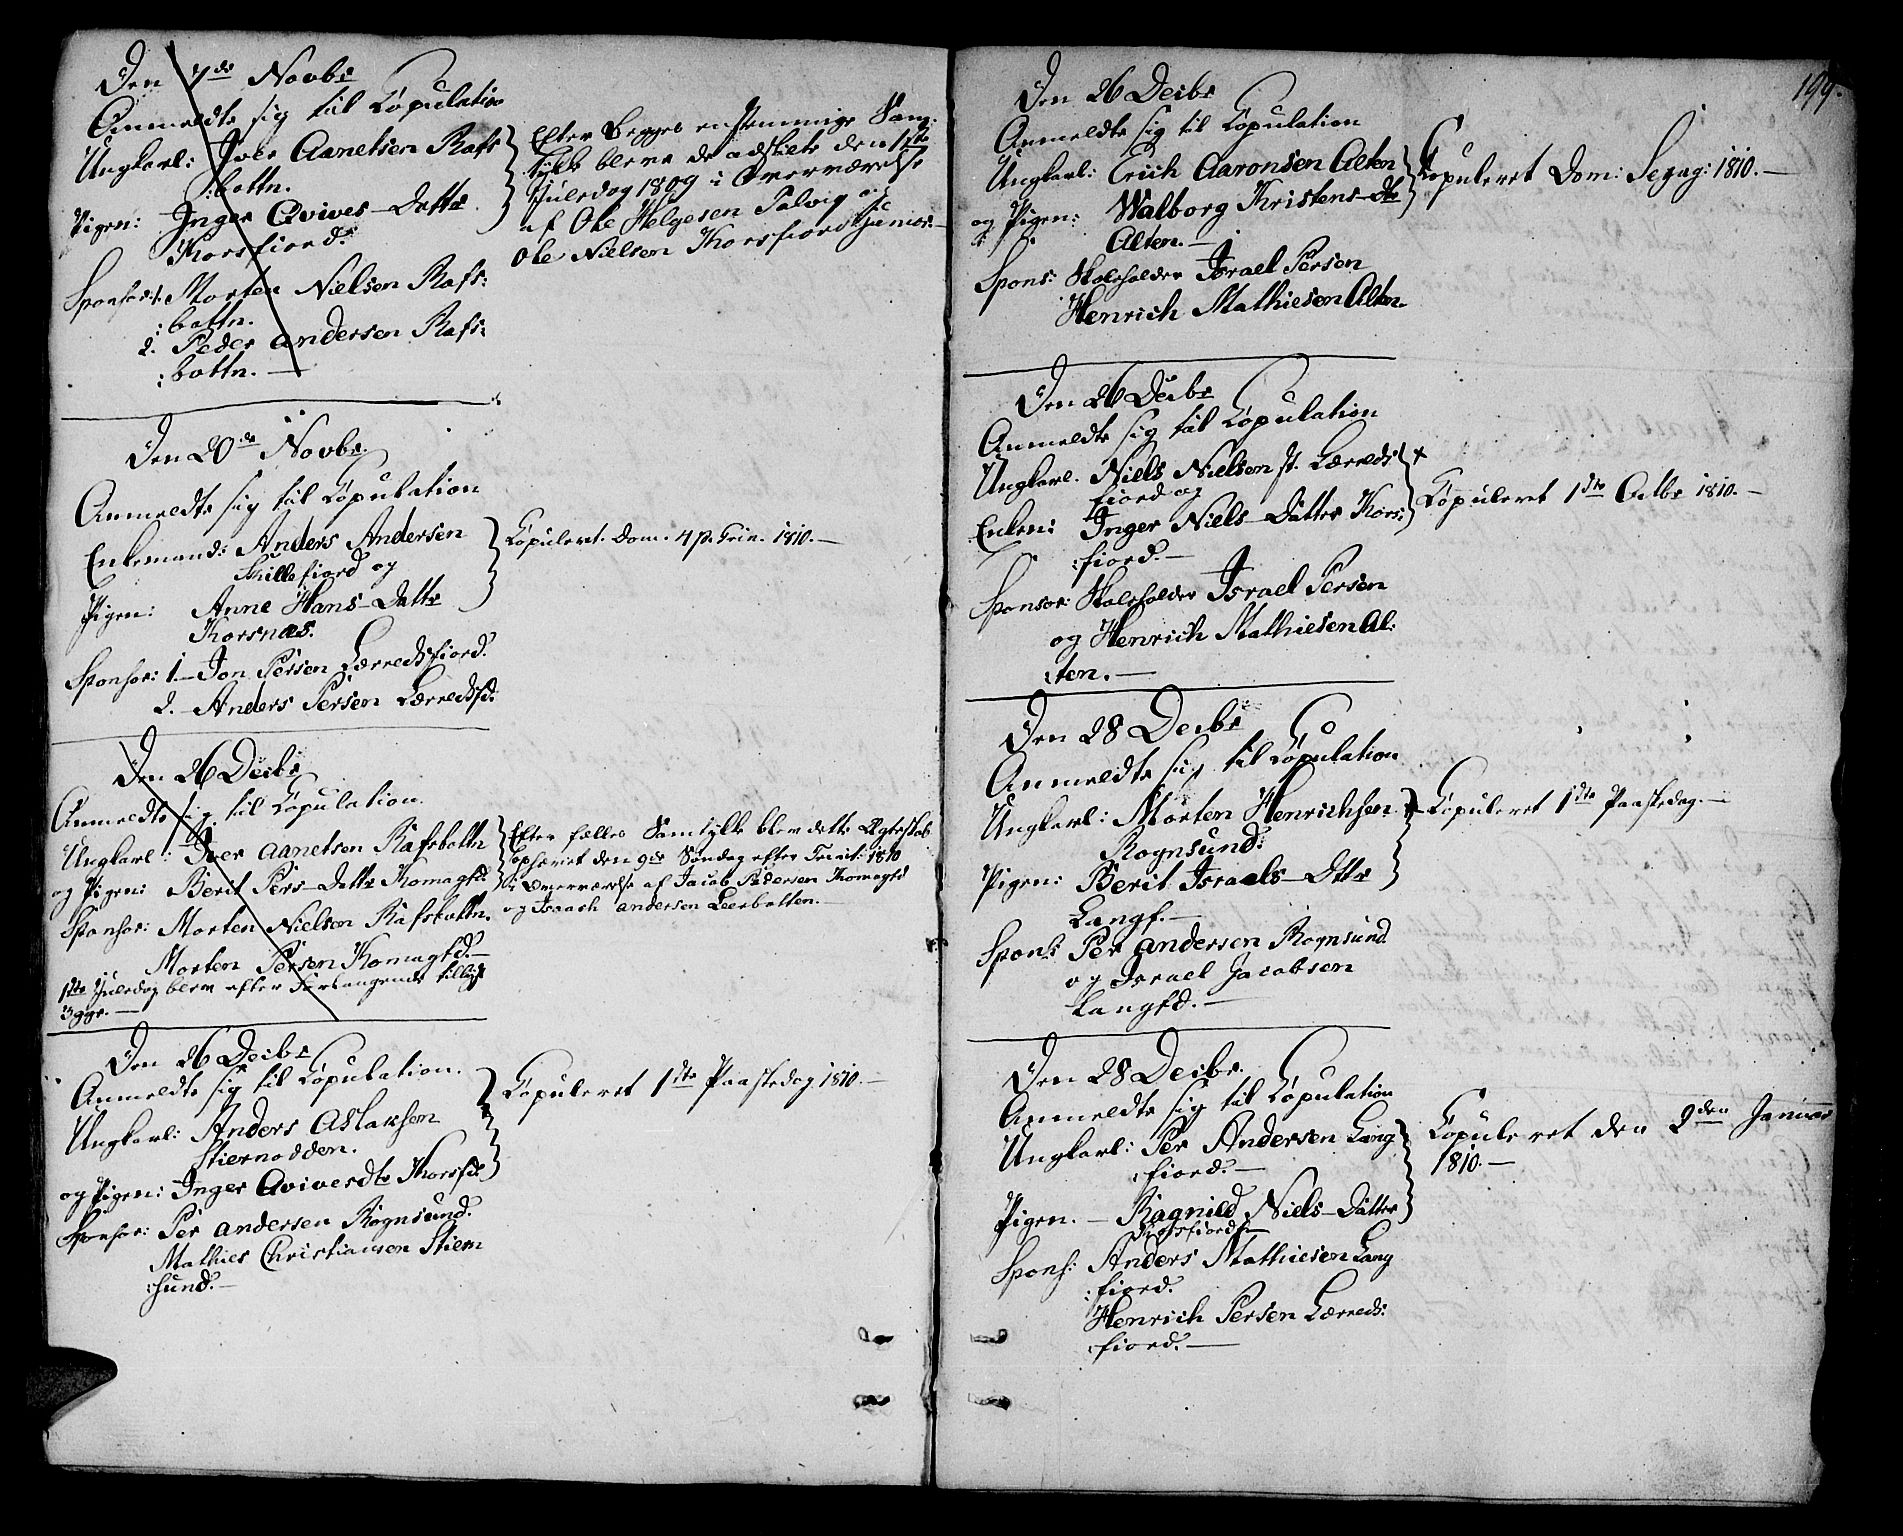 Den 7de Novbr
Anmeldte sig til Copulation
Ungkarl: Iver Aanetsen Rafs
:bottn.
Pigen: Inger Avives-Dattr
Korsfiord.
Sponsor: 1. Morten Nielsen Rafs:
:bottn.
2. Peder andersen Rafs:
:bottn. —
Efter begges enstemmige Sam:
tykke bleve de adskilte den 1ste
Juledag 1809 i Overværelse
af Ole Helgesen Talvig og
Ole Nielsen Korsfiord junior. —
Den 20de Novbr.
Anmeldte sig til Copulation
Enkemand: Anders Andersen
Skillefiord og
Pigen: Anne Hans-Dattr
Korsnæs.
Sponsor: 1. — Jon Persen Lærredsfiord.
2. — Anders Persen Lærredsfd:
Copuleret. Dom. 4 p. Trin. 1810. —
Den 26 Decbr
Anmeldte sig til Copulation.
Ungkarl: Iver aanetsen Rafsbottn
og Pigen: Berit Pers-Dattr Komagfd.
Sponsor: Morten Nielsen Rafsbottn.
Morten Persen Komagfd. —
1ste Juledag blev efter Forlangende tillyst
3 gge. —
Efter fælles Samtykke blev dette Ægteskab
ophævet den 9de Søndag efter Trinit: 1810
i Overværelse af Jacob Pedersen Komagfd
og Isaach andersen Leerbotten. —
Den 26 Decbr
Anmeldte sig til Copulation.
Ungkarl: Anders Aslaksen
Stiernodden.
og Pigen: Inger Aviversdtr Korsfd.
Sponsor: Per andersen Rognsund.
Mathies Christiansen Stiern
:sund. —
Copuleret 1ste Paaskedag 1810. —
199.
Den 26 Decbr
Anmeldte sig til Copulation
Ungkarl: Erich Aaronsen Alten
og Pigen: Walborg Kristens-Dtr
Alten. —
Spons: Skoleholder Israel Persen
Henrich Mathiesen Alten
Copuleret Dom: Sexag: 1810. —
Den 26 Decbr
Anmeldte sig til Copulation
Ungkarl. Niels Nielsen st. Lærreds
fiord og
Enken: Inger Niels-Datter Kors:
:fiord. —
Sponsor: Skoleholder Israel Persen
og Henrich Mathiesen Al:
:ten. —
Copuleret 1ste Octbr 1810. —
Den 28 Decbr
Anmeldte sig til Copulation
Ungkarl: Morten Henrichsen
Rognsund:
Pigen: Berit Israels-Dttr
Langf. —
Spons: Per andersen Rognsund
og Israel Jacobsen
Langfd. —
Copuleret 1ste Paaskedag. —
Den 28 Decbr.
Anmeldte sig til Copulation
Ungkarl: Per Andersen Lang
:fiord. —
Pigen. — Ragnild Niels-Datter
Spons: Anders Mathiesen Lang
:fiord.
Henrich Persen Lærreds:
:fiord. —
Copuleret den 2den Januar
1810. —